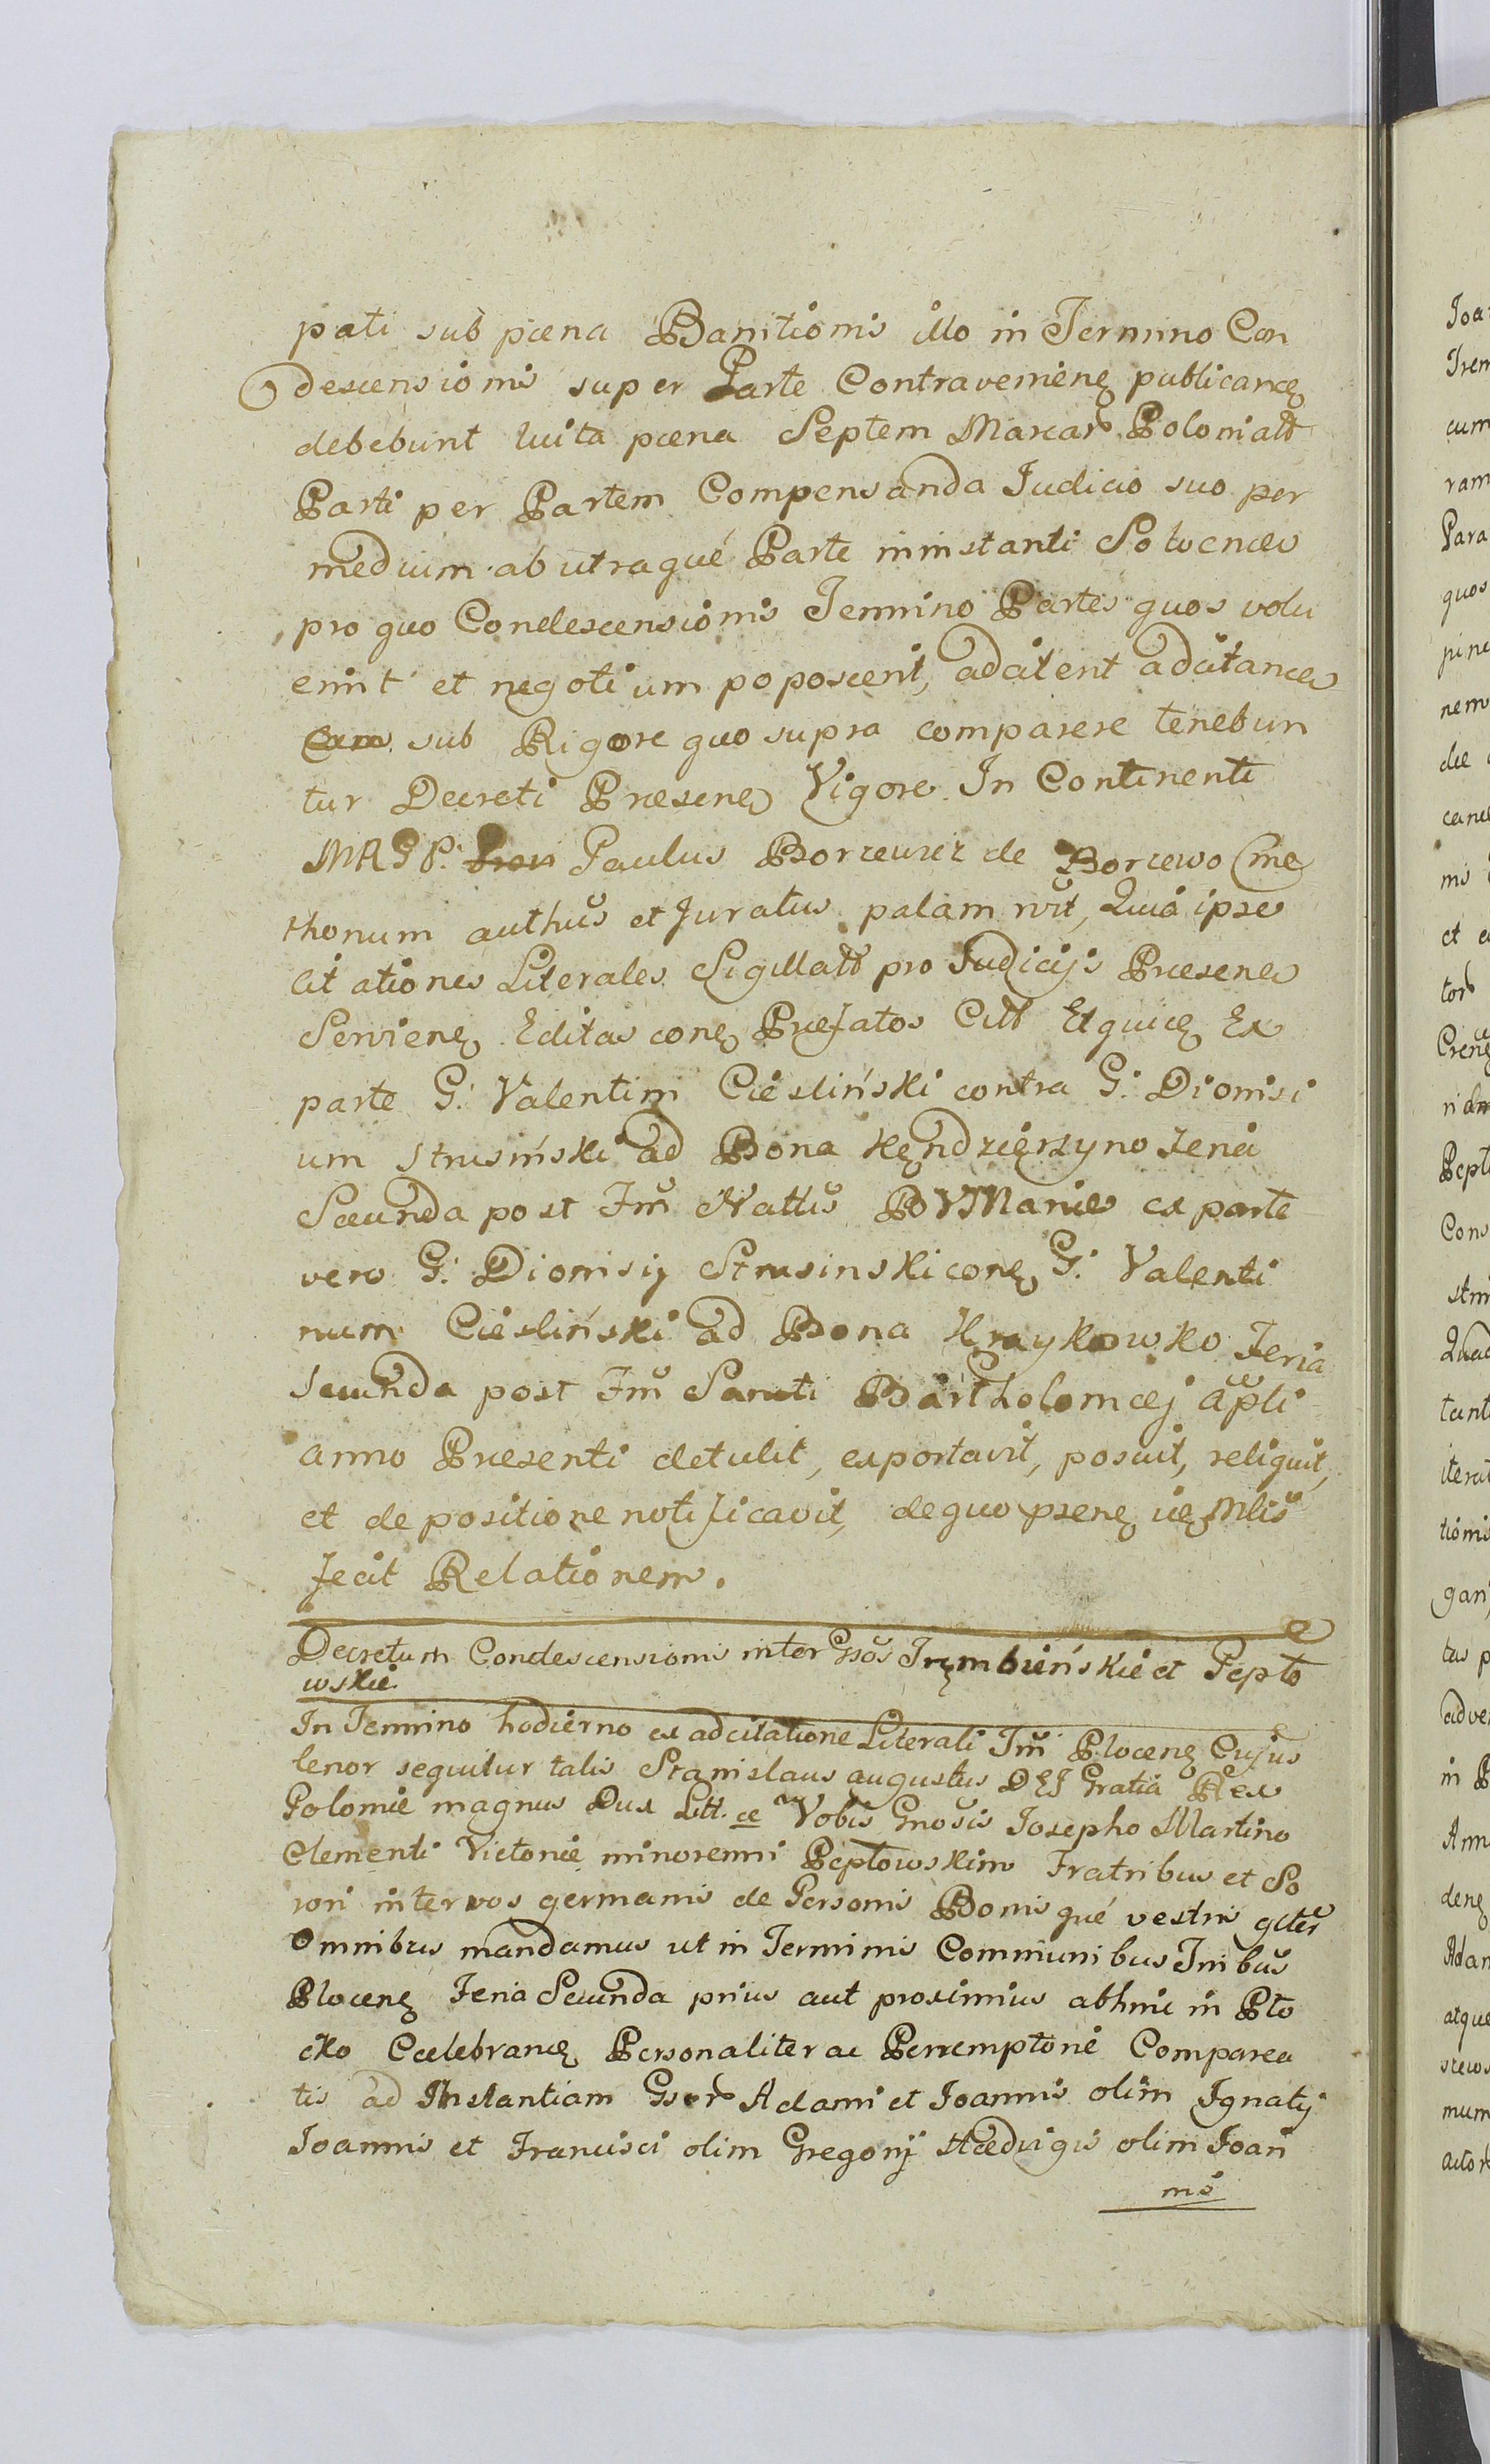 pati sub pœna Banitionis illo in Termino Con
descensionis super Parte Contravenienę publicancę
debebunt luita pœna Septem Marcar Polonialt
Parti per Partem Compensanda Judicio suo per
medium ab utraqué Parte in instanti
pro quo Condescensionis Termino Partes quos volu
erint et negotium poposcerit, adcitent adcitance
sub Rigore quo supra comparere tenebun
tur Decreti Præsene Vigore. In Continenti
Paulus Borzewicz de Borzewo Cme
thonum authûs et Juratus palam rvit, Quia ipse
Citationes Literales Sigillatt pro Judicijs Præsene
Servienę Editas conę Præfatos Citt Et quidę Ex
parte G. Valentini Cieśliński contra G. Dionisi
um Strusiński ad Bona Kędzierzyno Feria
Secunda post Fm̃ Nattis BVMariæ ex parte
vero G. Dionisij Strusinski conę G. Valenti
num Cieśliński ad Bona Kraykowko Feria
Secunda post Fm̃ Sancti Bartholomæj Apli
anno Præsenti detulit, exportavit, posuit, reliquit,
et de positione notificavit, de quo psenę
fecit Relationem.
Decretum Condescensionis inter Gsõs Trzmbińskie et Pepło
wskie.
In Termino hodierno ex adcitatione Literali Trm̃ Plocenę Cujus
tenor sequitur talis Stanislaus augustus DEI Gratia Rex
Poloniæ magnus Dux Litt. ce Vobis Gnosis Josepho Martino
Clementi Victoriæ minorenni Pepłowskim Fratribus et So
rori inter vos germanis de Personis Bonisqué vestris gtter
Omnibus mandamus ut in Terminis Communibus Tribus
Plocenę Feria Secunda prius aut proximius abhinc in Pło
cko Cælebrancę Personaliter ac Perremptorie Comparea
tis ad Instantiam Gsor Adami et Joannis olim Ignatij
Joannis et Francisci olim Gregorij Hædvigis olim Joan
nis